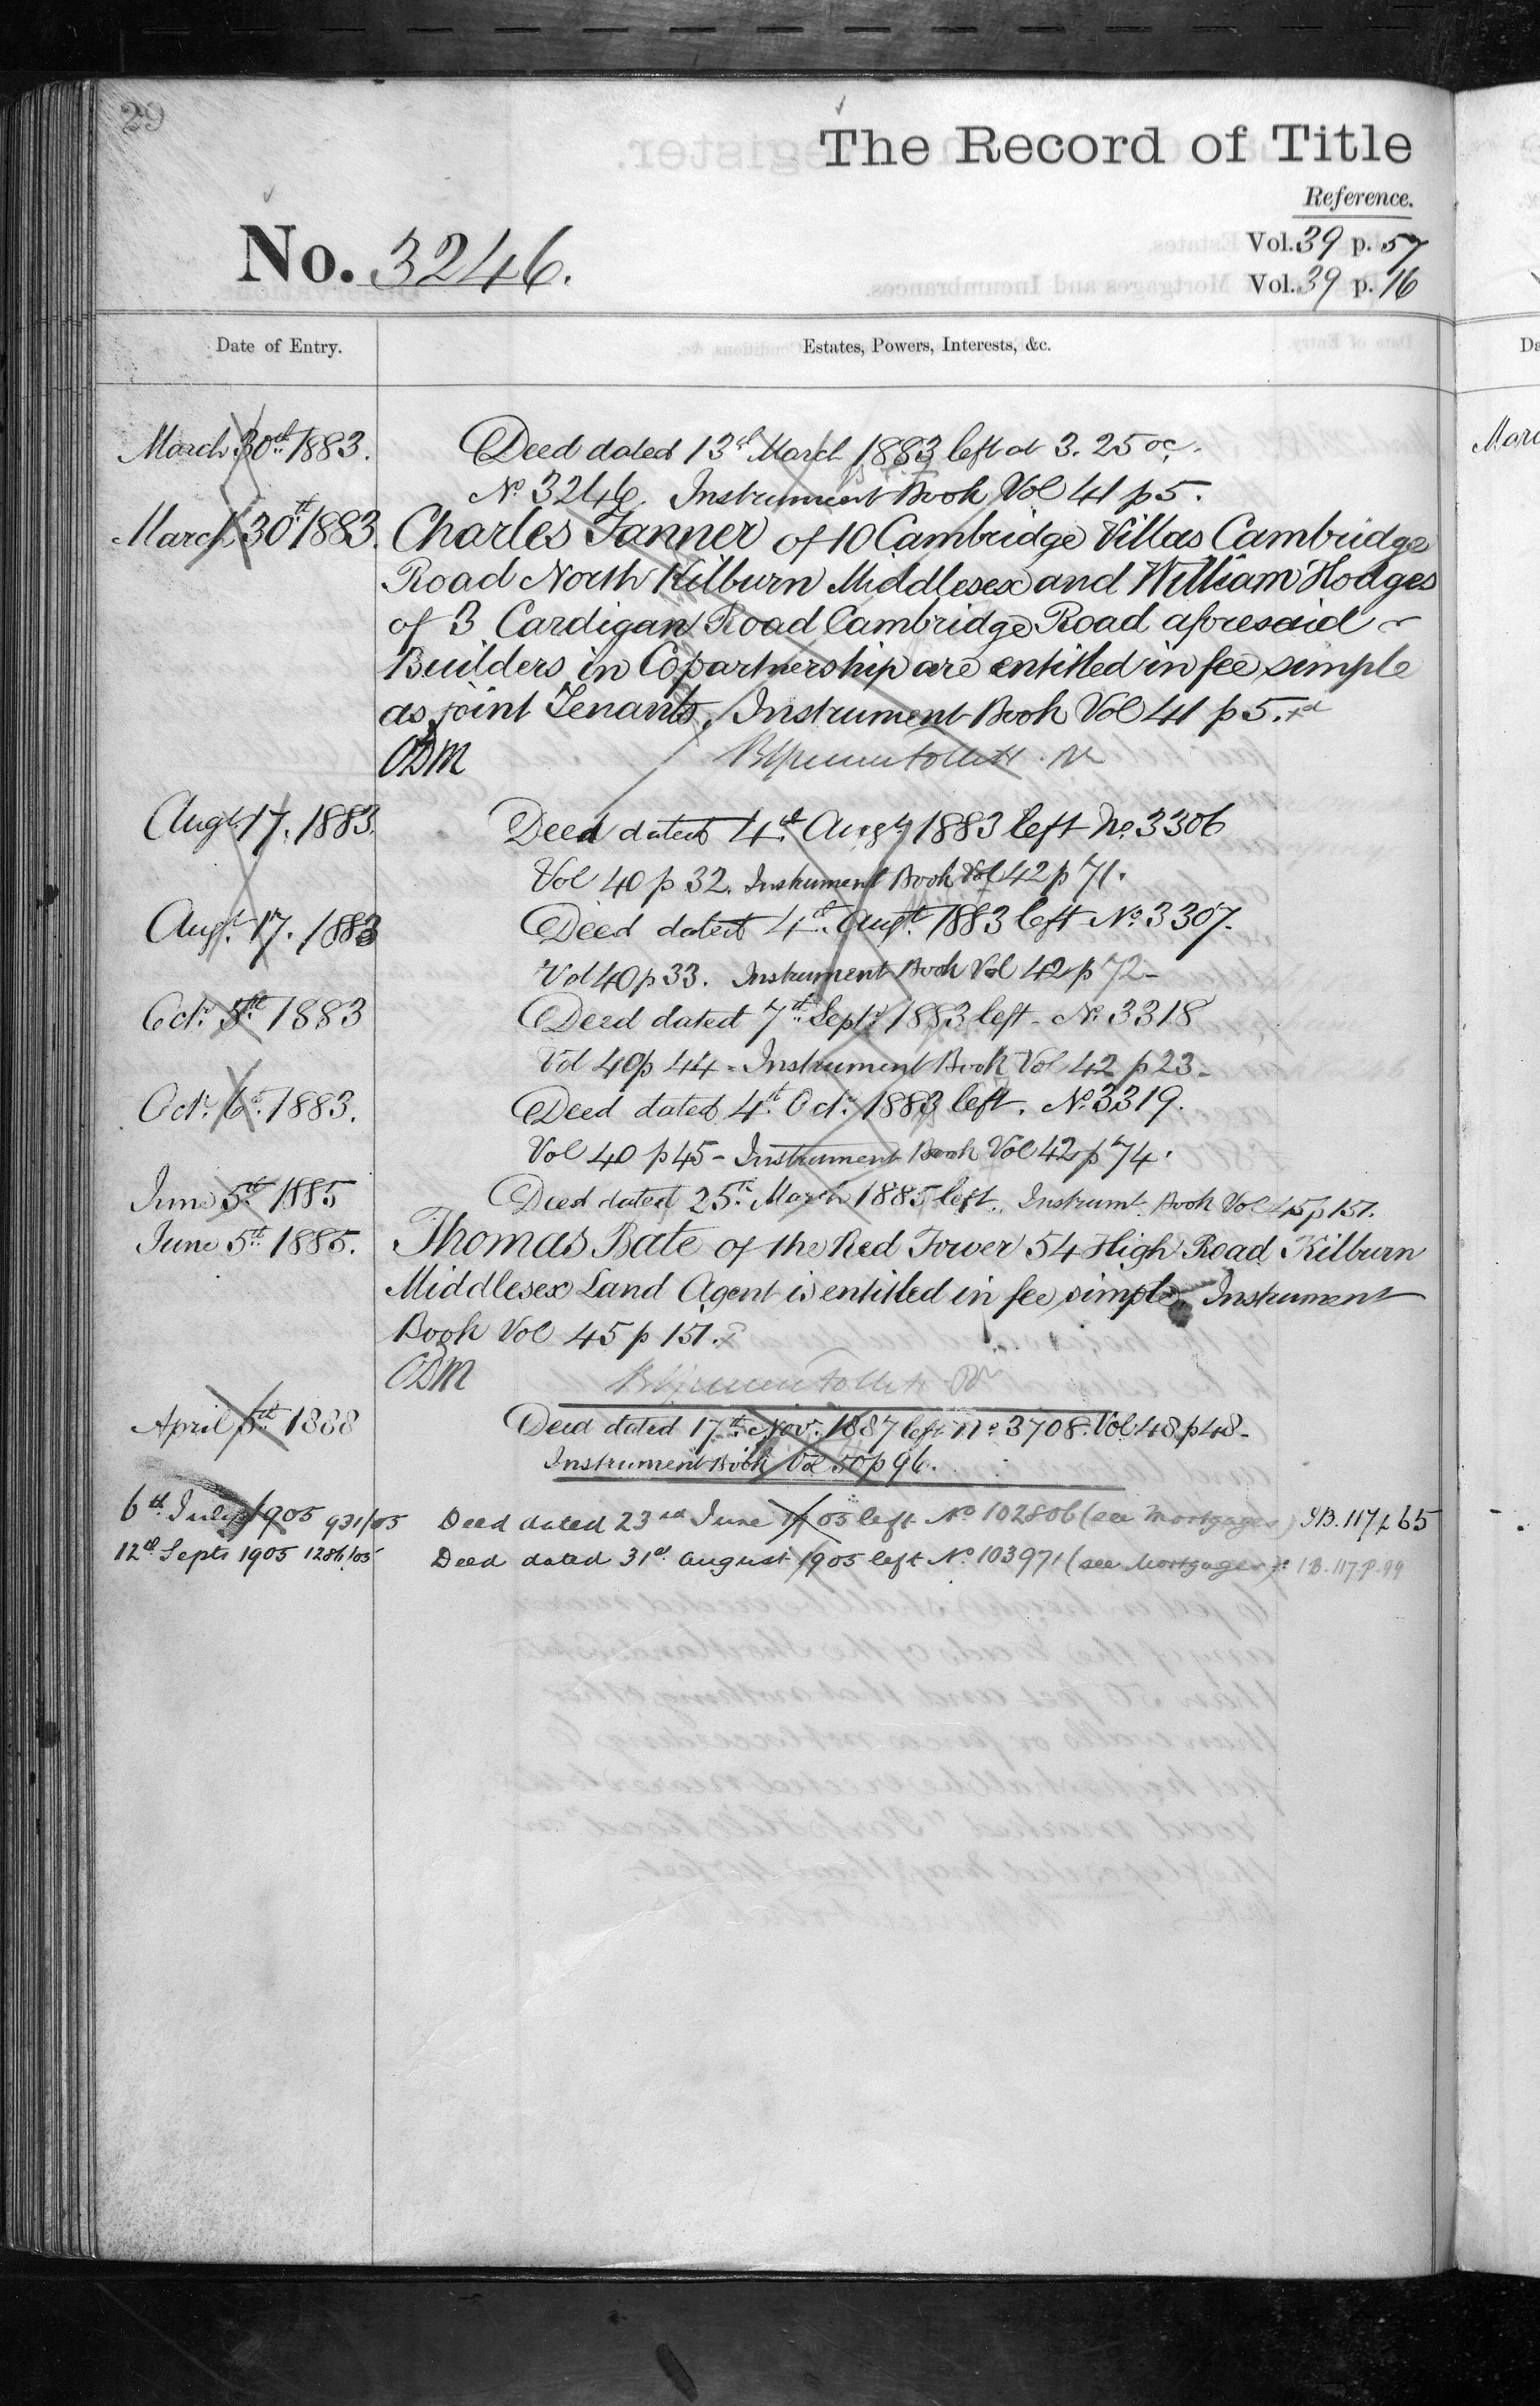 29
The Record of Title
Reference.
No. 3246.
Vol. 39 p. 57
Vol. 39 p. 16
Date of Entry.
Estates, Powers, Interests, &c.
March 30th 1883. Deed dated 13th March 1883 left at 3. 25 oc.
No 3246. Instrument Book Vol 41 p 5.
March 30th 1883. Charles Tanner of 10 Cambridge Villas Cambridge
Road North Kilburn Middlesex and William Hodges
of 3 Cardigan Road Cambridge Road aforesaid
Builders in Copartnership are entitled in fee simple
as joint Tenants. Instrument Book Vol 41 p 5.
Augt. 17. 1883. Deed dated 4th Augt 1883 left No. 3306
Vol 40 p 32. Instrument Book Vol 42 p 71.
Augt. 17. 1883 Deed dated 4th. Augt. 1883 left No. 3307.
Vol 40 p 33. Instrument Book Vol 42 p 72-
Octr. 5th 1883 Deed dated 7th. Septr. 1883 left - No. 3318
Vol 40 p 44 - Instrument Book Vol 42 p 23-
Octr. 6th. 1883. Deed dated 4th. Octr. 1883 left. No. 3319.
Vol 40 p 45 - Instrument Book Vol 42 p 74.
June 5th 1885 Deed dated 25th. March 1885 left. Instrumt. Book Vol 45 p 151.
June 5th 1885. Thomas Bate of the Red Tower 54 High Road Kilburn
Middlesex Land Agent is entitled in fee simple. Instrument
Book Vol 45 p 151.
April 5th. 1888 Deed dated 17th. Novr. 1887 left No 3708. Vol. 48. p 48-
Instrument Book Vol 50 p 96.
6th July 1905 931/05 Deed dated 23rd June 1905 left No 102806 (see Mortgages) I.B. 117 p 65
12th Septr 1905 1286/05 Deed dated 31st august 1905 left No. 103971 (see Mortgages) I B. 117. P. 99